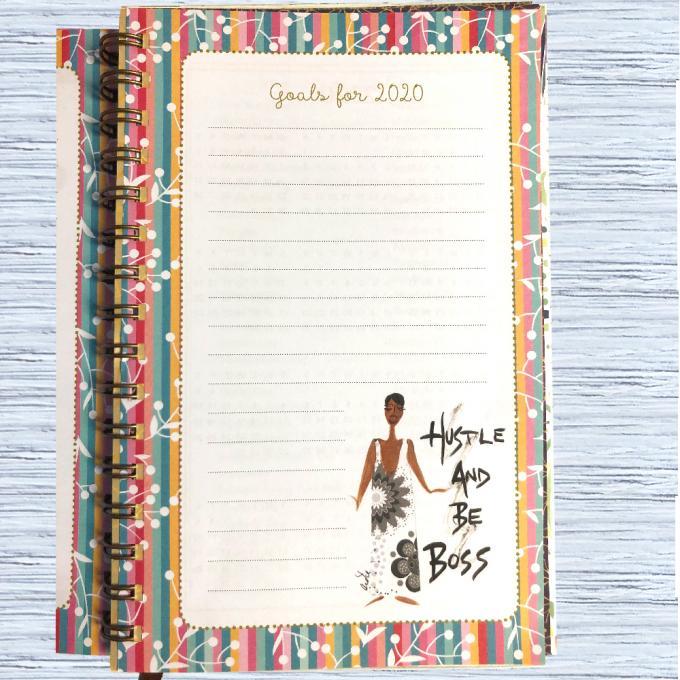 Goals for 2020
HUSTLE
AND
BE
BOSS